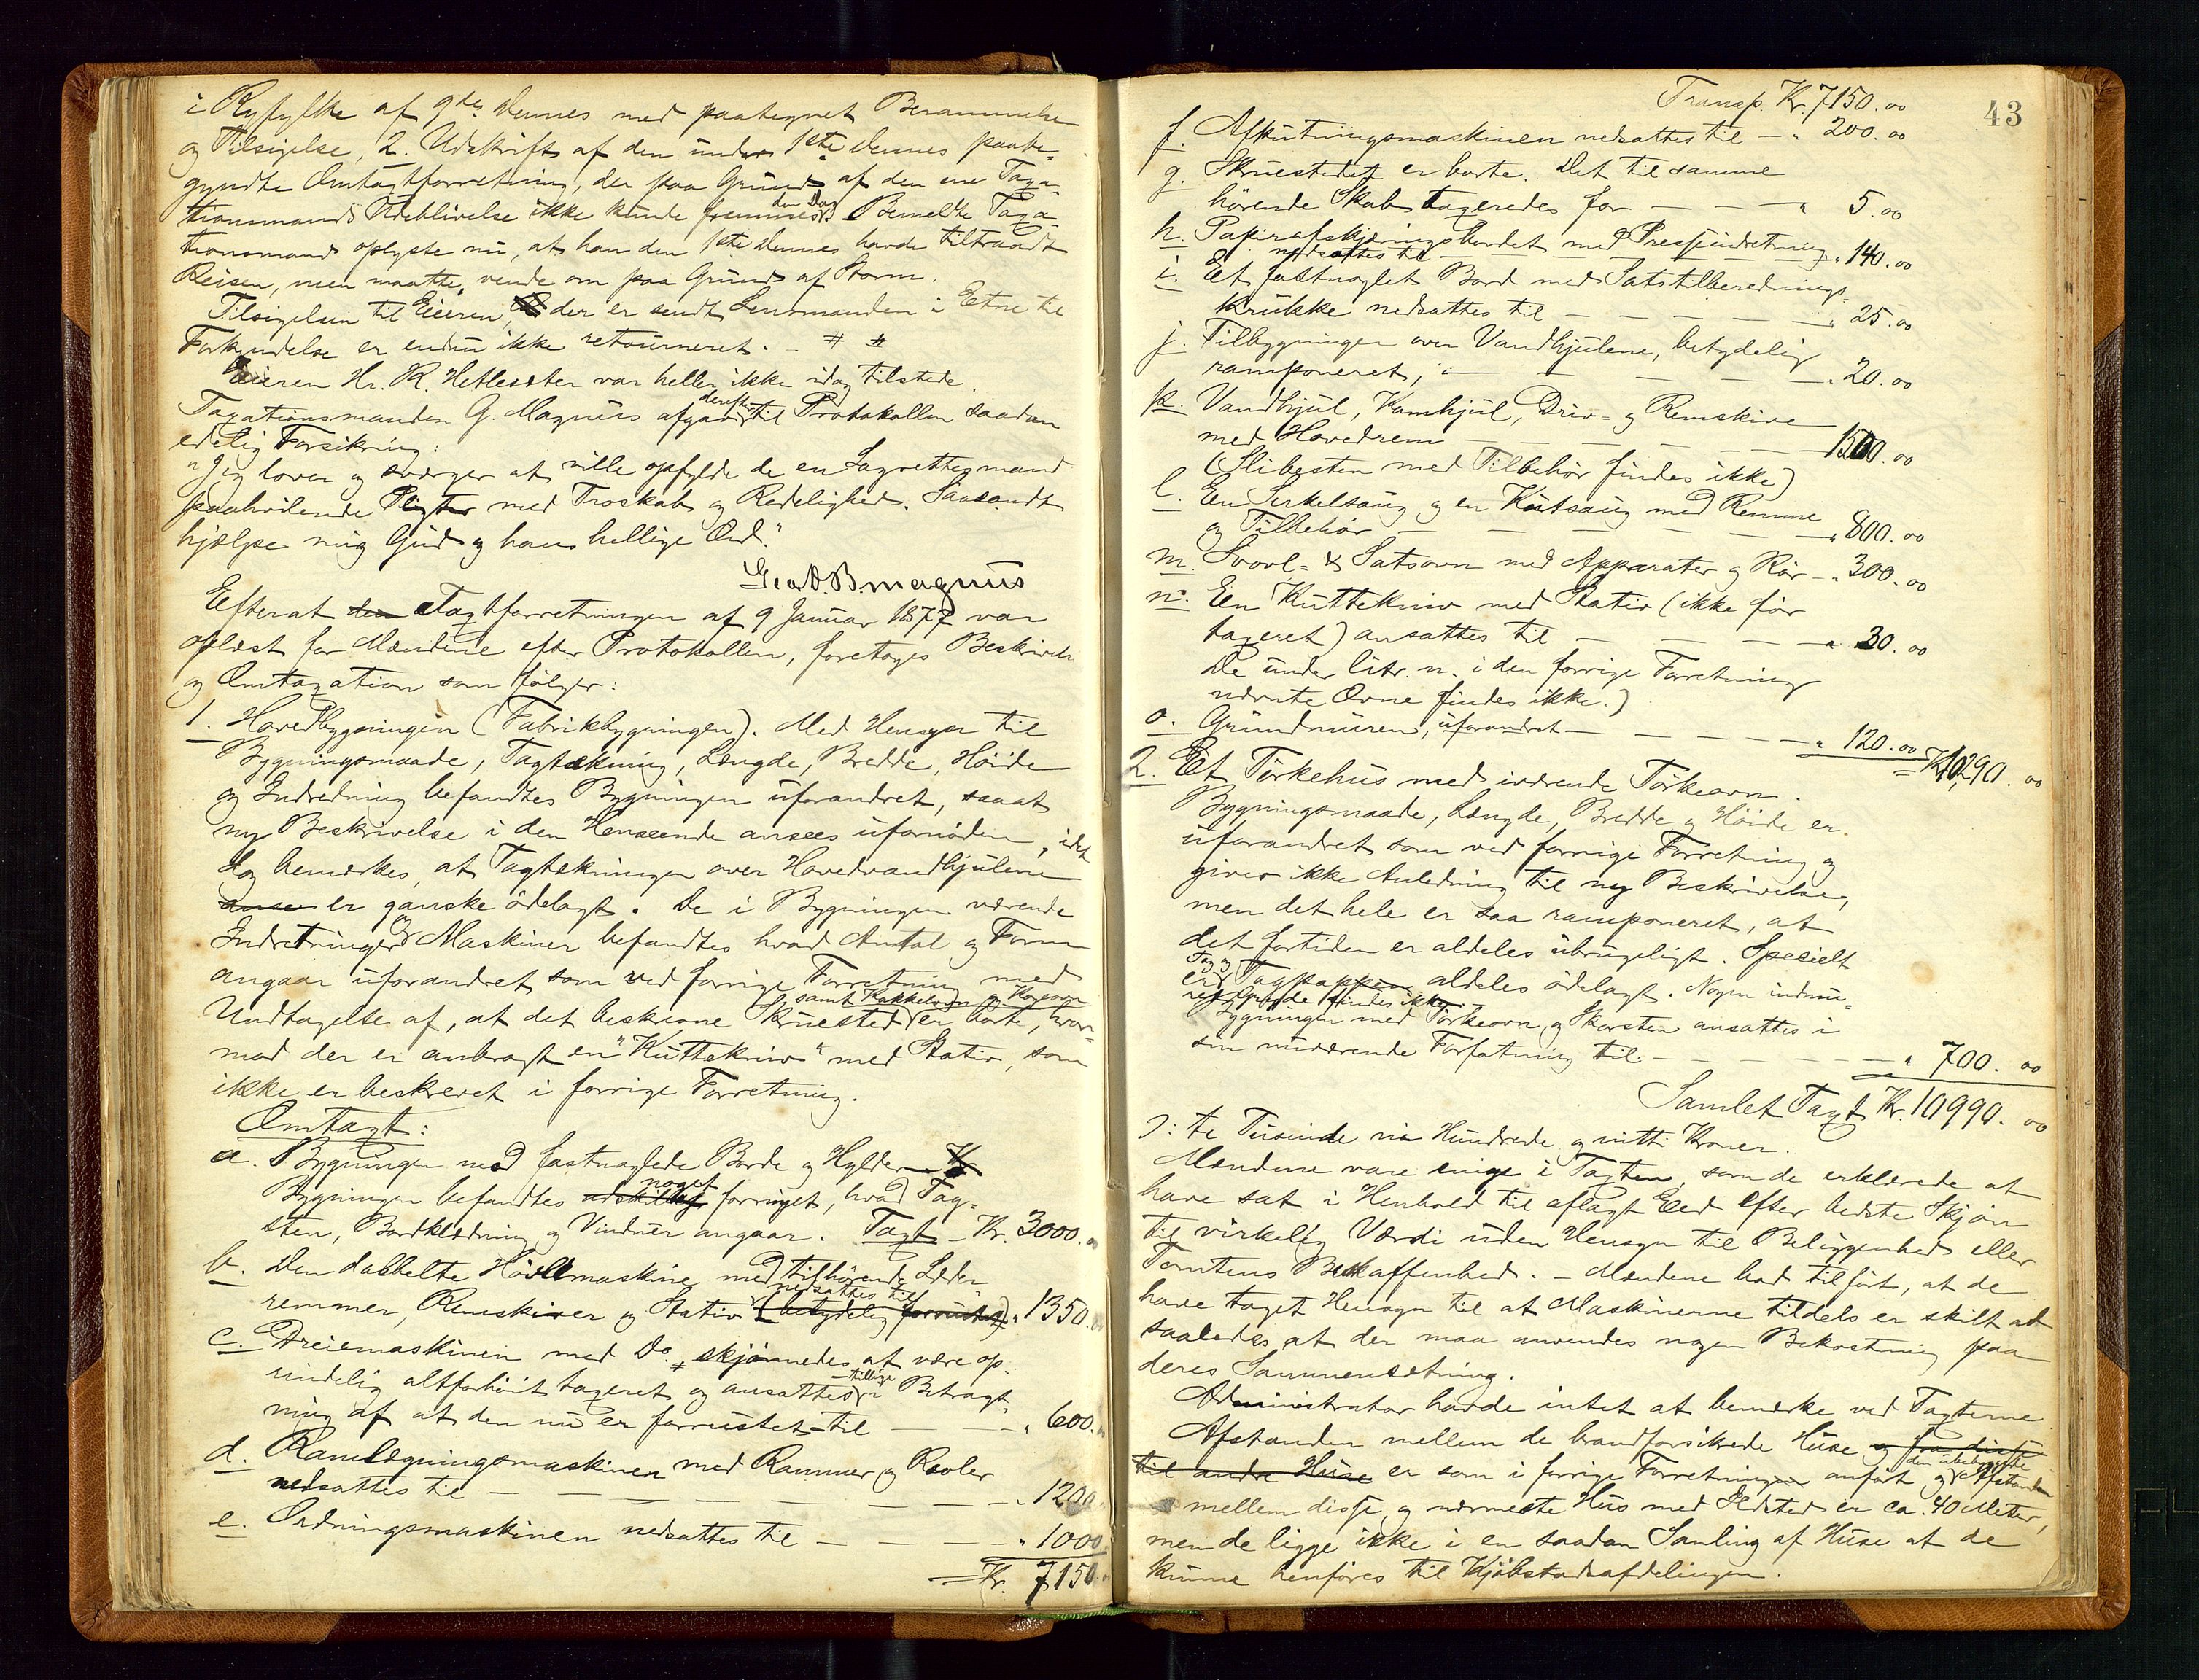 i Ryfylke af 9de dennes med paategnet Berammelse
og Tilsigelse, 2. Udskrift af den under 1ste dennes paabe-
gyndte Omtaxtforretning, der paa Grund af den ene Taxa-
tionsmands Udeblivelse ikke kunde fremmes den Dag. Bemeldte Taxa-
tionsmand oplyste nu, at han den 1ste dennes havde tiltraadt
Reisen, men maatte vende om paa Grund af Storm.
Tilsigelsen til Eieren, der er sendt Lensmanden i Etne til
Forkyndelse er endnu ikke retourneret. – # #
Eieren Hr. K. Hetlesæter var heller ikke idag tilstede.
Taxationsmanden G. Magnus afgav derefter til Protokollen saadan
edelig Forsikring:
"Jeg lover og sværger at ville opfylde de en Lagrettesmand
paahvilende Pligter med Troskab og Redelighed. Saasandt
hjælpe mig Gud og hans hellige Ord."
Magnus
Efterat den Taxtforretningen af 9 Januar 1877 var
oplæst for Mændene efter Protokollen, foretoges Beskrivelse
og Omtaxation som følger:
1. Hovedbygningen (Fabrikbygningen). Med Hensyn til
Bygningsmaade, Tagtækning, Længde, Bredde, Höide
og Indredning befandtes Bygningen uforandret, saaat
ny Beskrivelse i den Henseende ansees ufornöden, idet
dog bemærkes, at Tagtækningen over Hovedvandhjulene
er ganske ödelagt. De i Bygningen værende
Indretninger og Maskiner befandtes hvad Antal og Form
angaar uforandret som ved forrige Forretning med
Undtagelse af, at det beskrevne Skruested samt Kakkelovn og Kogeovn er borte, hvor-
mod der er anbragt en "Kuttekniv" med Stativ, som
ikke er beskrevet i forrige Forretning.
Omtaxt:
a. Bygningen med fastnaglede Borde og Hylder – Kr
Bygningen befandtes noget forringet, hvad Tag-
sten, Bordklædning og Vinduer angaar. Taxt – Kr. 3000.
b. Den dobbelte Hövlemaskine med tilhörende Læder-
remmer, Remskiver og Stativ nedsattes til (betydelig forrustet) " 1350.
c. Dreiemaskinen med Do. skjönnedes at være op-
rindelig altforhöit taxeret og ansattes tillige i Betragt-
ning af at den nu er forrustet – til — — " 600.
d. Ramlægningsmaskinen med Rammer og Reoler
nedsattes til — — — — — " 1200.
e. Ordningsmaskinen nedsattes til — — — " 1000
Kr. 7150.
43
Transp. Kr. 7150.00
f. Afkutningsmaskinen nedsattes til — " 200.00
g. Skruestedet er borte. Det til samme
hörende Skab taxeredes for — — — " 5.00
h. Papirafskjæringsbordet med Presseindretning
nedsattes til — " 140.00
i. Et fastnaglet Bord med Satstilberednings-
krukke nedsattes til — — — — " 25.00
j. Tilbygningen over Vandhjulene, betydelig
ramponeret, — — — — " 20.00
k. Vandhjul, Kamhjul, Driv- og Remskive
med Hovedrem — — — — 1500.00
(Slibesten med Tilbehör findes ikke)
l. En Sirkelsaug og en Kutsaug med Remme
og Tilbehör — — — — — " 800.00
m. Svovl- & Satsovn med Apparater og Rör – " 300.00
n. En Kuttekniv med Stativ (ikke för
taxeret) ansattes til — — — " 30.00
De under litr. n. i den forrige Forretning
nævnte Ovne findes ikke.)
o. Grundmuren, uforandret — — — — " 120.00
= Kr. 10,290.00
2. Et Törkehus med iværende Törkeovn.
Bygningsmaade, Længde, Bredde og Höide er
uforandret som ved forrige Forretning og
giver ikke Anledning til ny Beskrivelse,
men det hele er saa ramponeret, at
det fortiden er aldeles ubrugeligt. Specielt
er Tag og Tagpappen aldeles ödelagt. Nogen indmu-
findes ikke.
Bygningen med Törkeovn og Skorsten ansattes i
sin nuværende Forfatning til — — — " 700.00
Samlet Taxt Kr. 10990.00
ɔ: ti Tusinde ni Hundrede og nitti Kroner.
Mændene vare enige i Taxten, som de erklærede at
have sat i Henhold til aflagt Eed efter bedste Skjön
til virkelig Værdi uden Hensyn til Beliggenhed eller
Tomtens Beskaffenhed. – Mændene bad tilfört, at de
have taget Hensyn til at Maskinerne tildels er skilt ad
saaledes at der maa anvendes nogen Bekostning paa
deres Sammensætning.
Administrator havde intet at bemærke ved Taxterne
Afstanden mellem de brandforsikrede Huse og fra disse
til andre Huse er som i forrige Forretningen anfört og den ubebyggede Afstand
mellem disse og nærmeste Hus med Ildsted er ca. 40 Meter,
men de ligge ikke i en saadan Samling af Huse at de
kunne henföres til Kjöbstadsafdelingen.